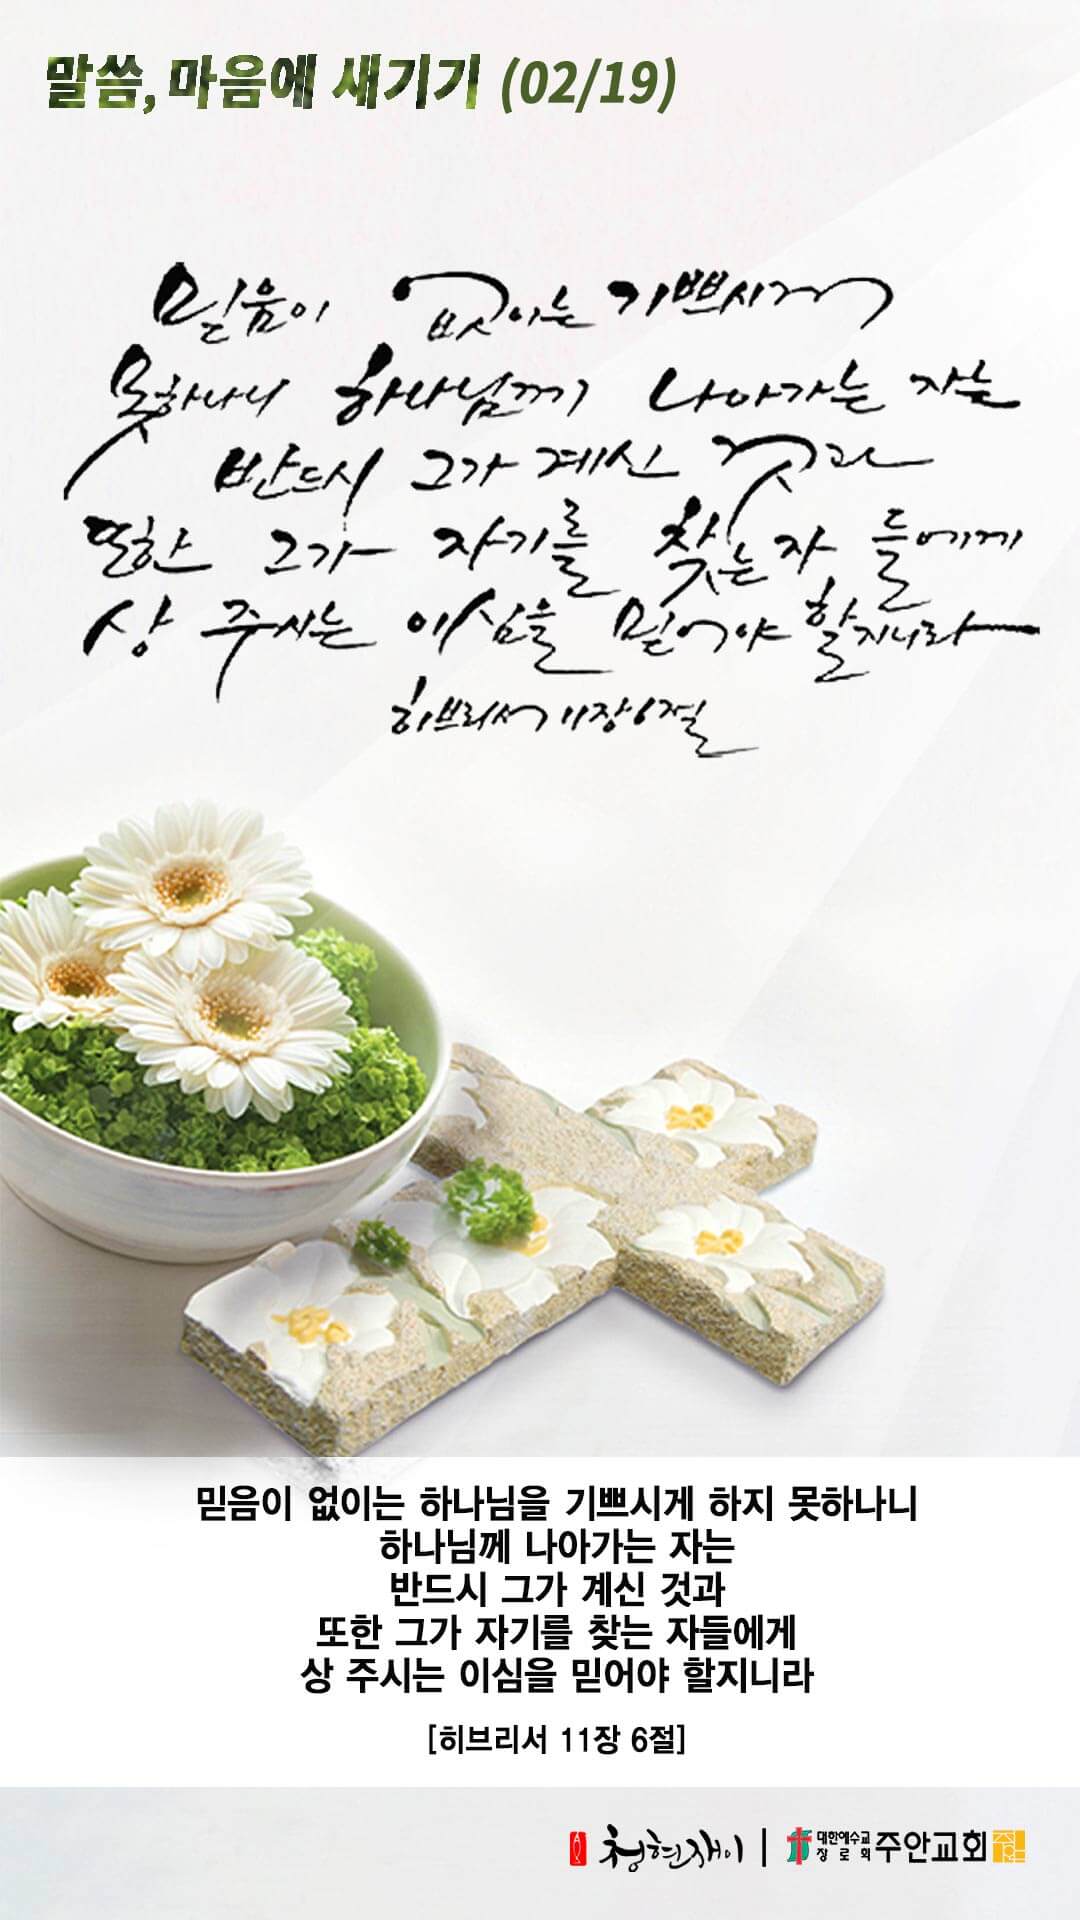 말씀, 마음에 새기기 (02/19)
믿음이 없이는 기쁘시게
못하나니 하나님께 나아가는 자는
반드시 그가 계신 것과
또한 그가 자기를 찾는 자들에게
상 주시는 이심을 믿어야 할지니라
히브리서 11장 6절
믿음이 없이는 하나님을 기쁘시게 하지 못하나니
하나님께 나아가는 자는
반드시 그가 계신 것과
또한 그가 자기를 찾는 자들에게
상 주시는 이심을 믿어야 할지니라
[히브리서 11장 6절]
청현재이 | 대한예수교
장로회 주안교회